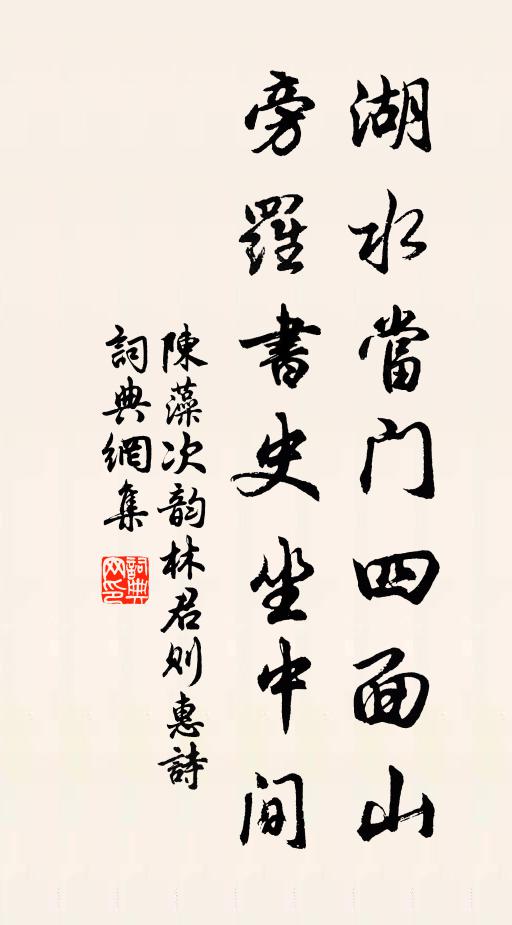 湖水當门四面山
旁羅書史坐中间
陳藻次韵林君则惠詩
詞典網集
詞典網印